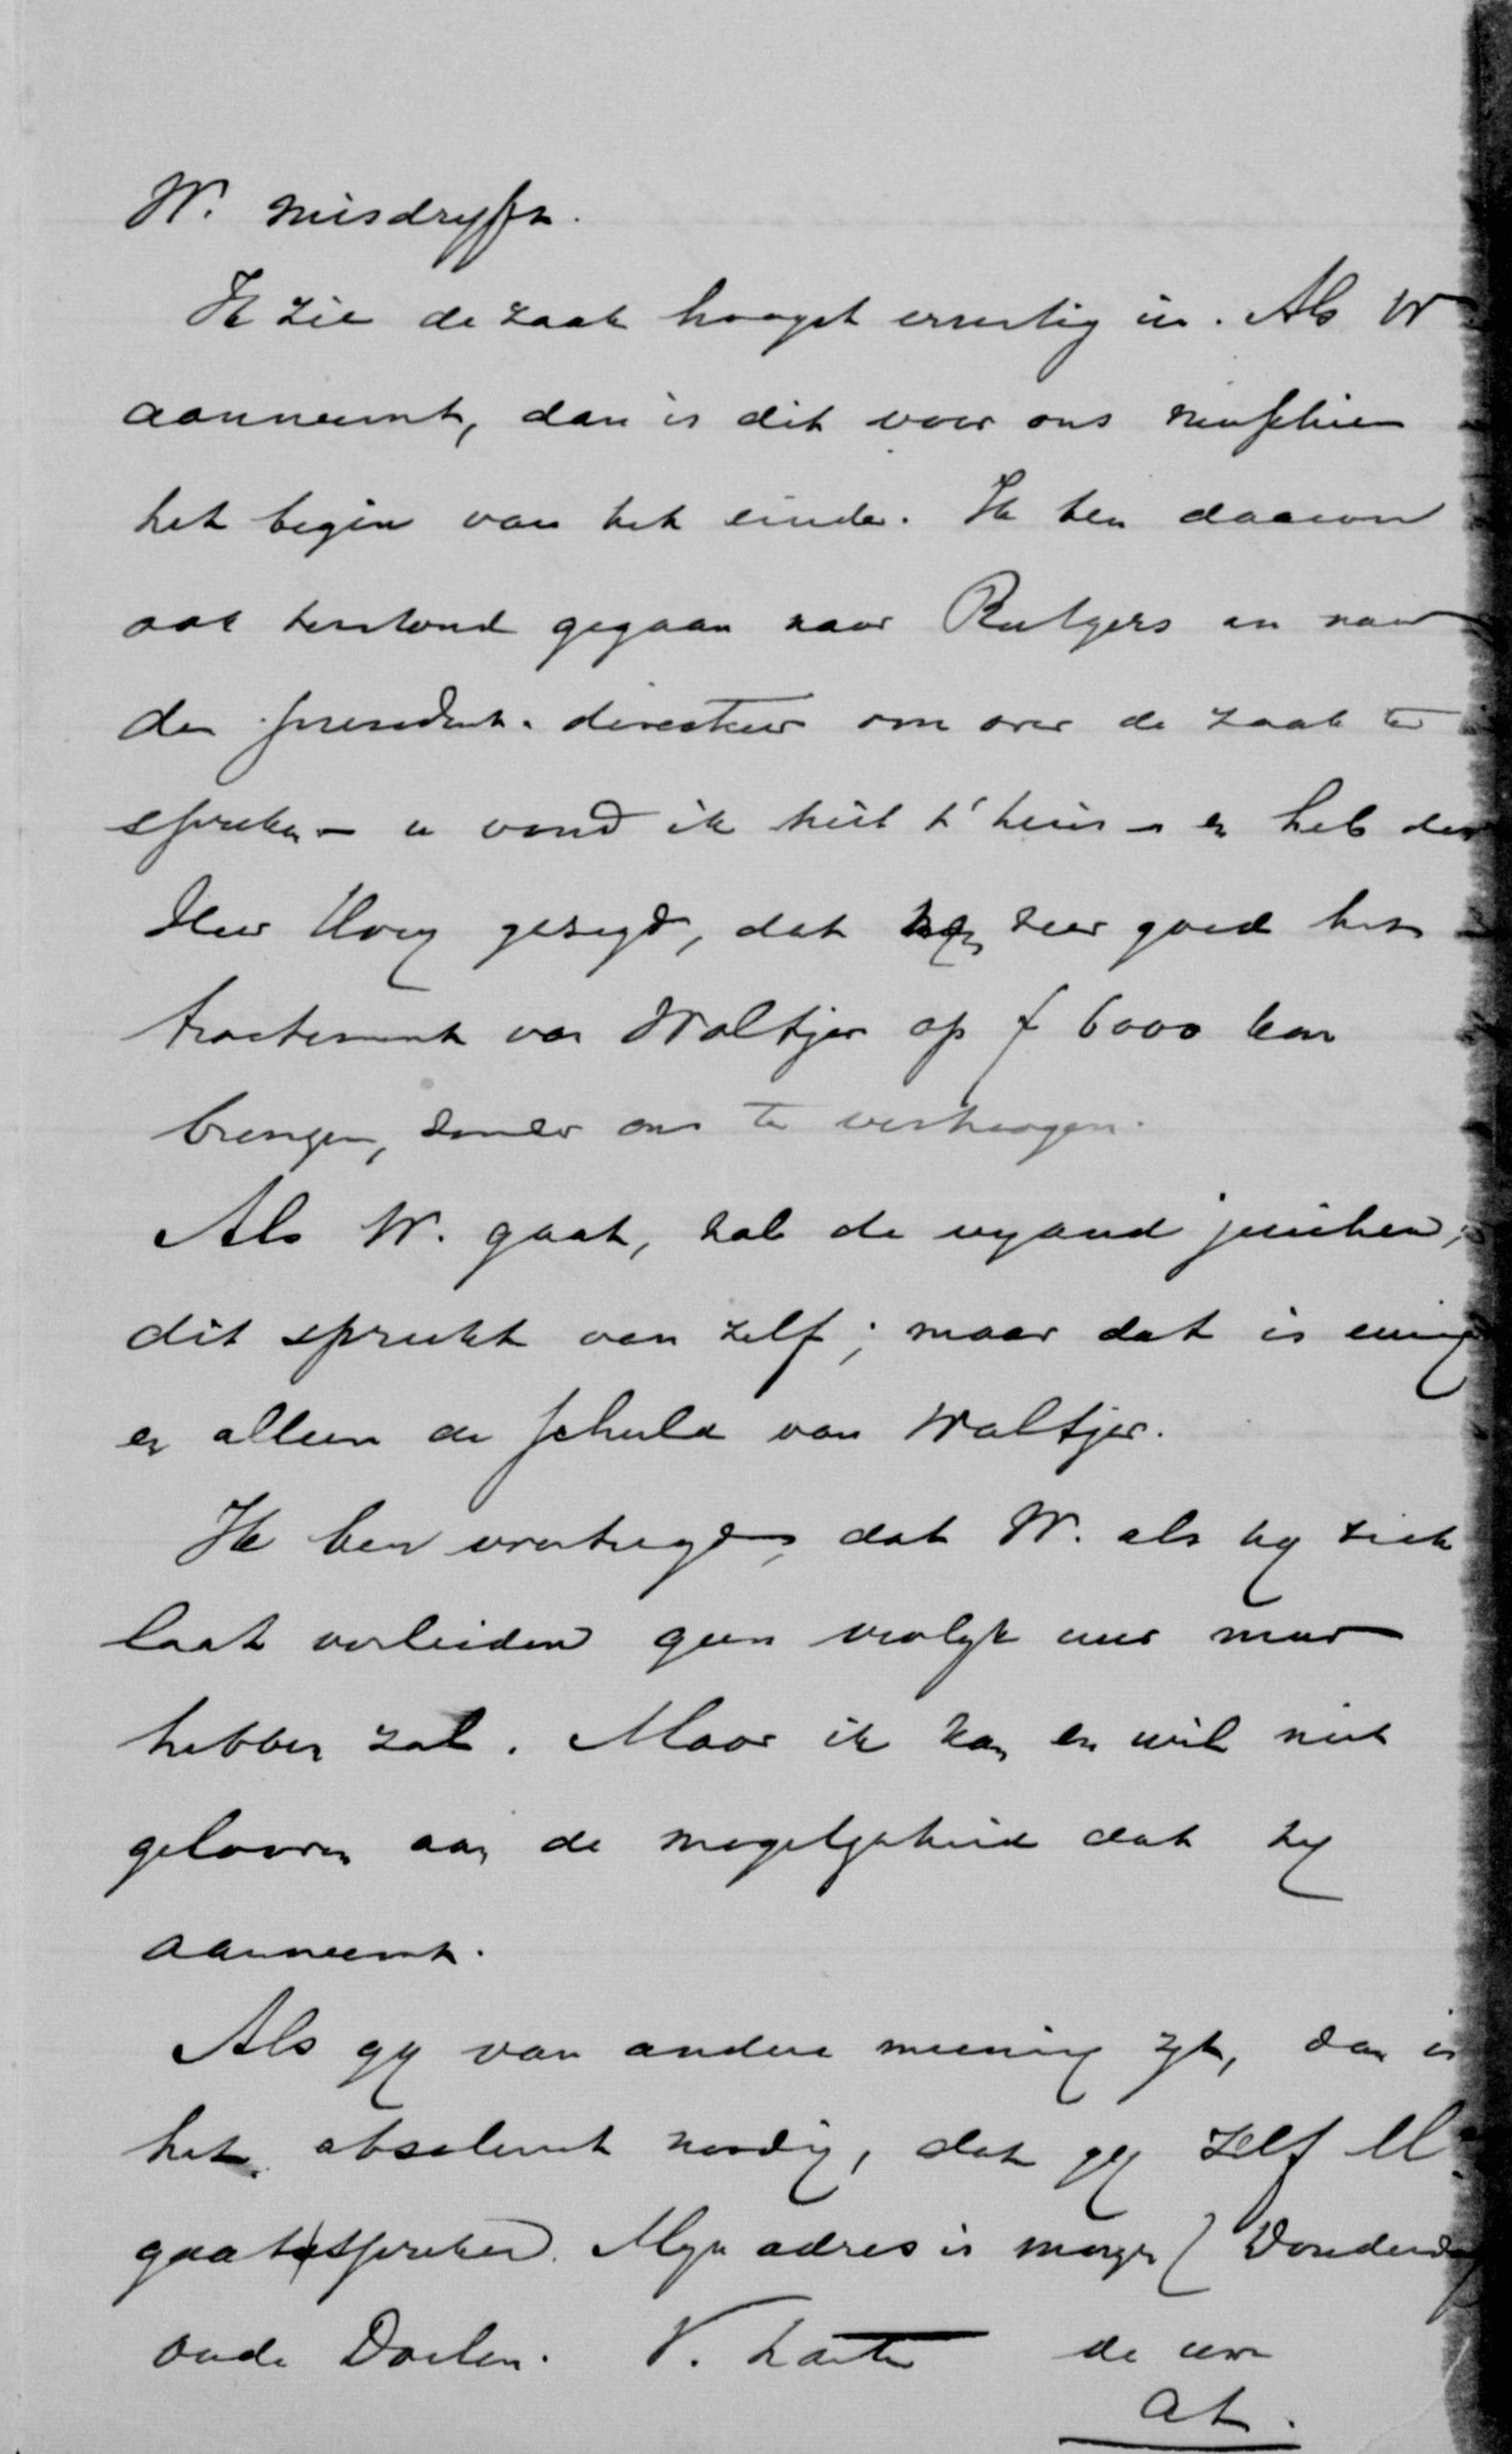 W. misdryft.
Ik zie de zaak hoogst ernstig in. Als W
aanneemt, dan is dit voor ons misschien
het begin van het einde. Ik ben daarom
ook terstond gegaan naar Rutgers en naar
den president-directeur om over de zaak te
spreken – u vond ik niet t'huis – en heb den
Heer Hovy gezegd, dat hy zeer goed het
tractement van Woltjer op f 6000 kan
brengen, zonder ons te verhoogen.
Als W. gaat, zal de vyand juichen;
dit spreekt van zelf; maar dat is eenig
en alleen de schuld van Woltjer.
Ik ben overtuigd, dat W. als hy zich
laat verleiden geen vrolyk uur meer
hebben zal. Maar ik kan en wil niet
gelooven aan de mogelykheid dat hy
aanneemt.
Als gy van andere meening zyt, dan is
het absoluut noodig, dat gy zelf
gaat spreken. Myn adres is morgen (Donderdag
oude Doelen. de uw